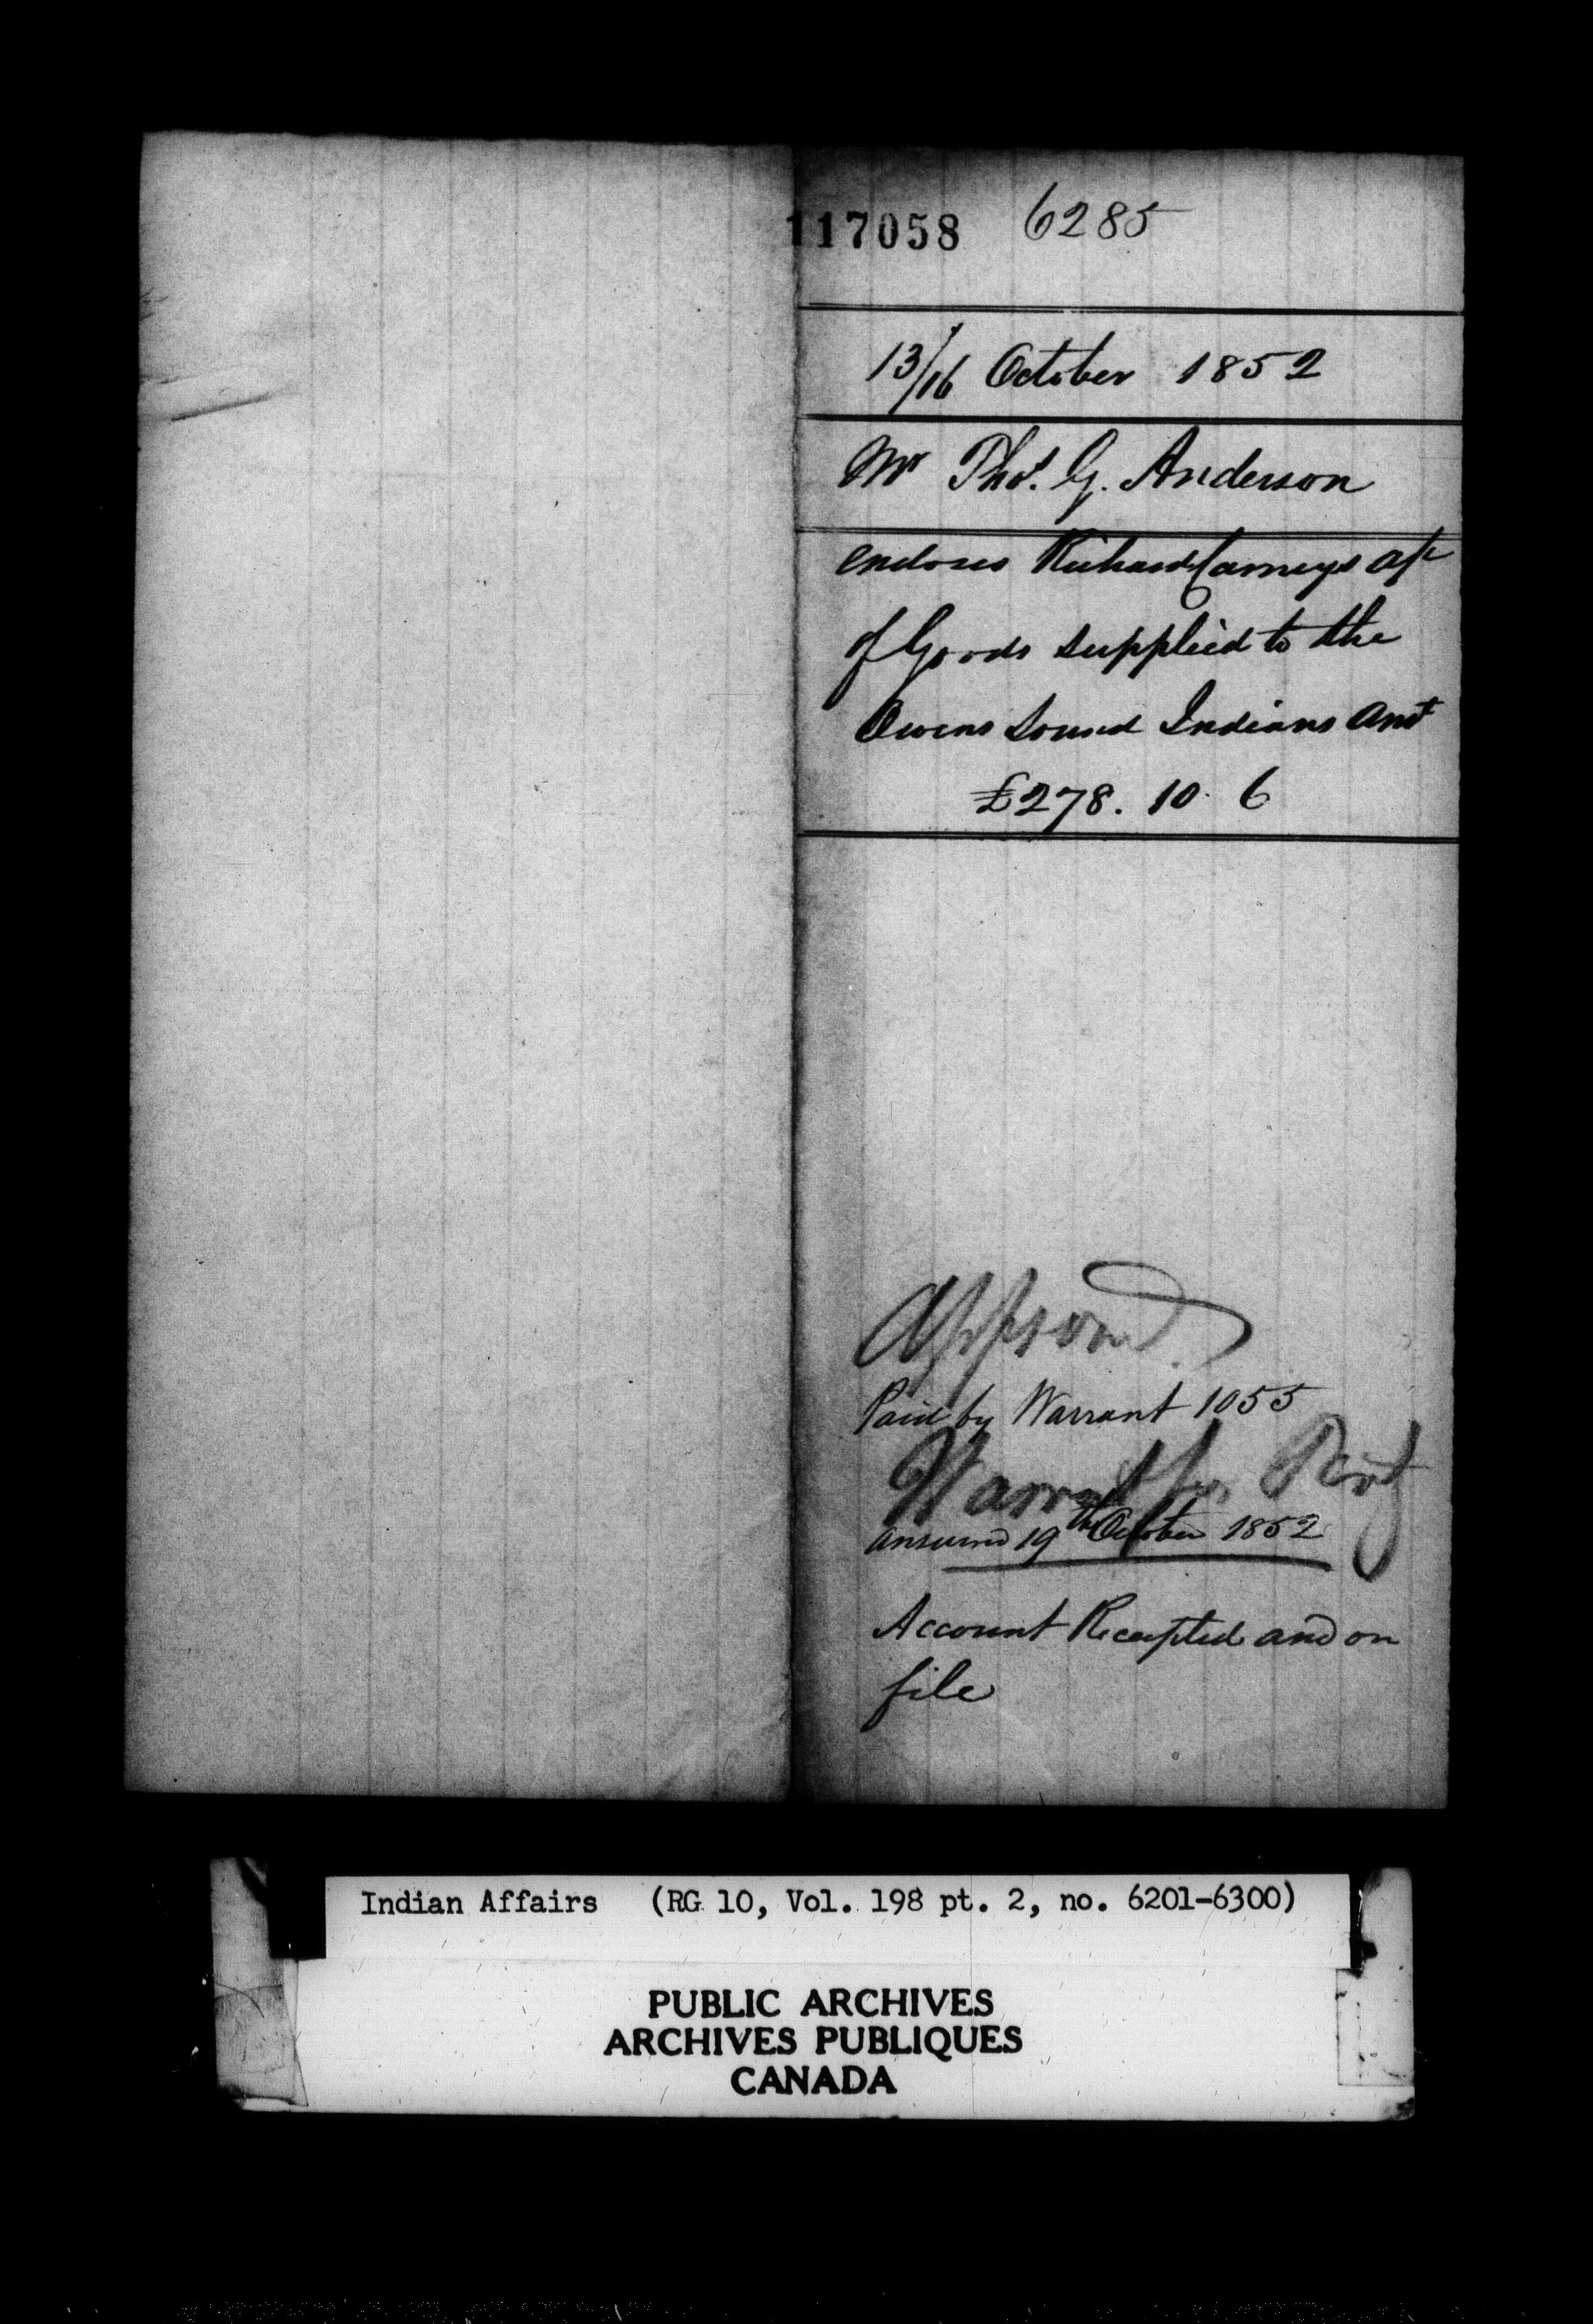 117058 6285
13/16 October 1852
Mr Thos. G. Anderson
encloses Richard Carneys a/c
of Goods supplied to the
Owens Sound Indians Amt
£278. 10. 6
Approved.
Paid by Warrant 1055
Warrant for
answered 19th October 1852
Account Receipted and on
file
Indian Affairs (RG 10, Vol. 198 pt. 2, no. 6201-6300)
PUBLIC ARCHIVES
ARCHIVES PUBLIQUES
CANADA